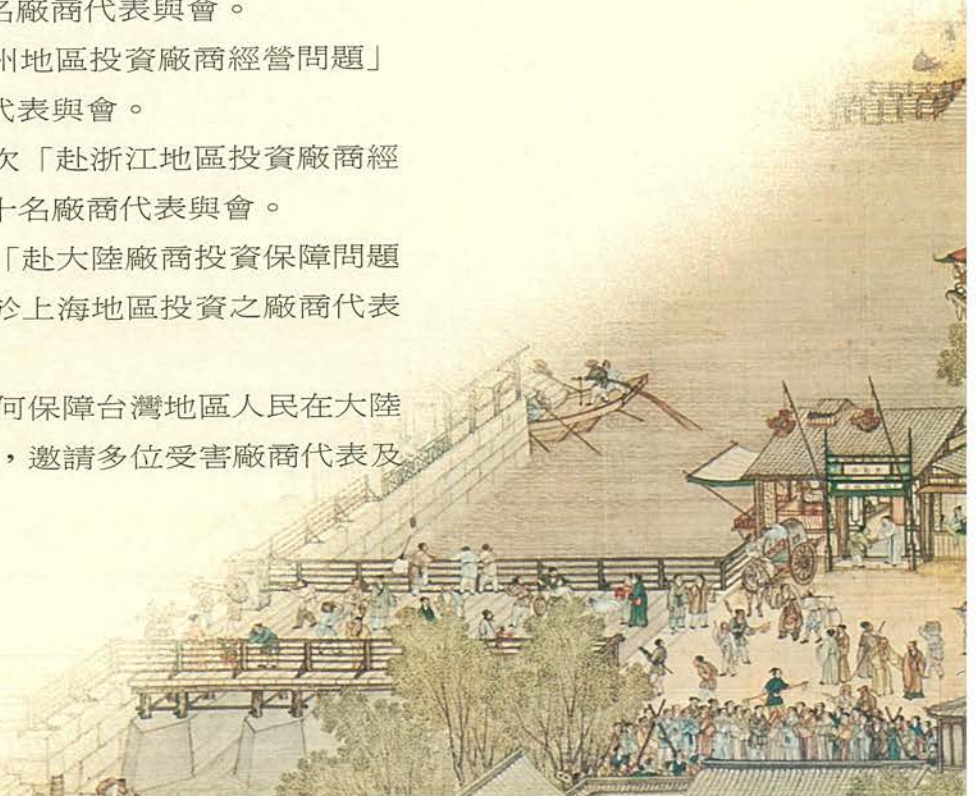 名廠商代表與會。
州地區投資廠商經營問題」
代表與會。
次「赴浙江地區投資廠商經
十名廠商代表與會。
「赴大陸廠商投資保障問題
於上海地區投資之廠商代表
何保障台灣地區人民在大陸
，邀請多位受害廠商代表及